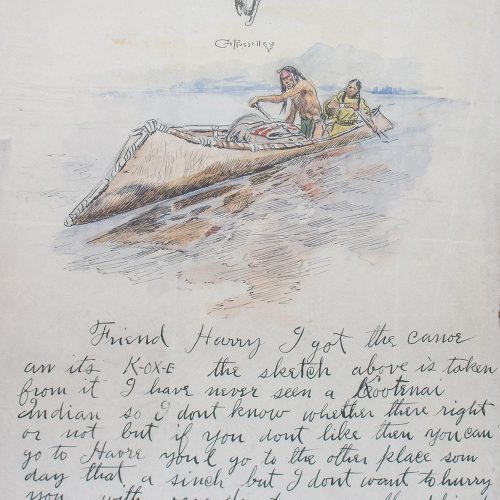 CM Russell
Friend Harry I got the canoe
an its K-OX-E the sketch above is taken
from it I have never seen a Kootenai
Indian so I dont know whether there right
or not but if you dont like then you can
go to Havre you'l go to the other place som
day that, a sinch but I dont want to hurry
you with